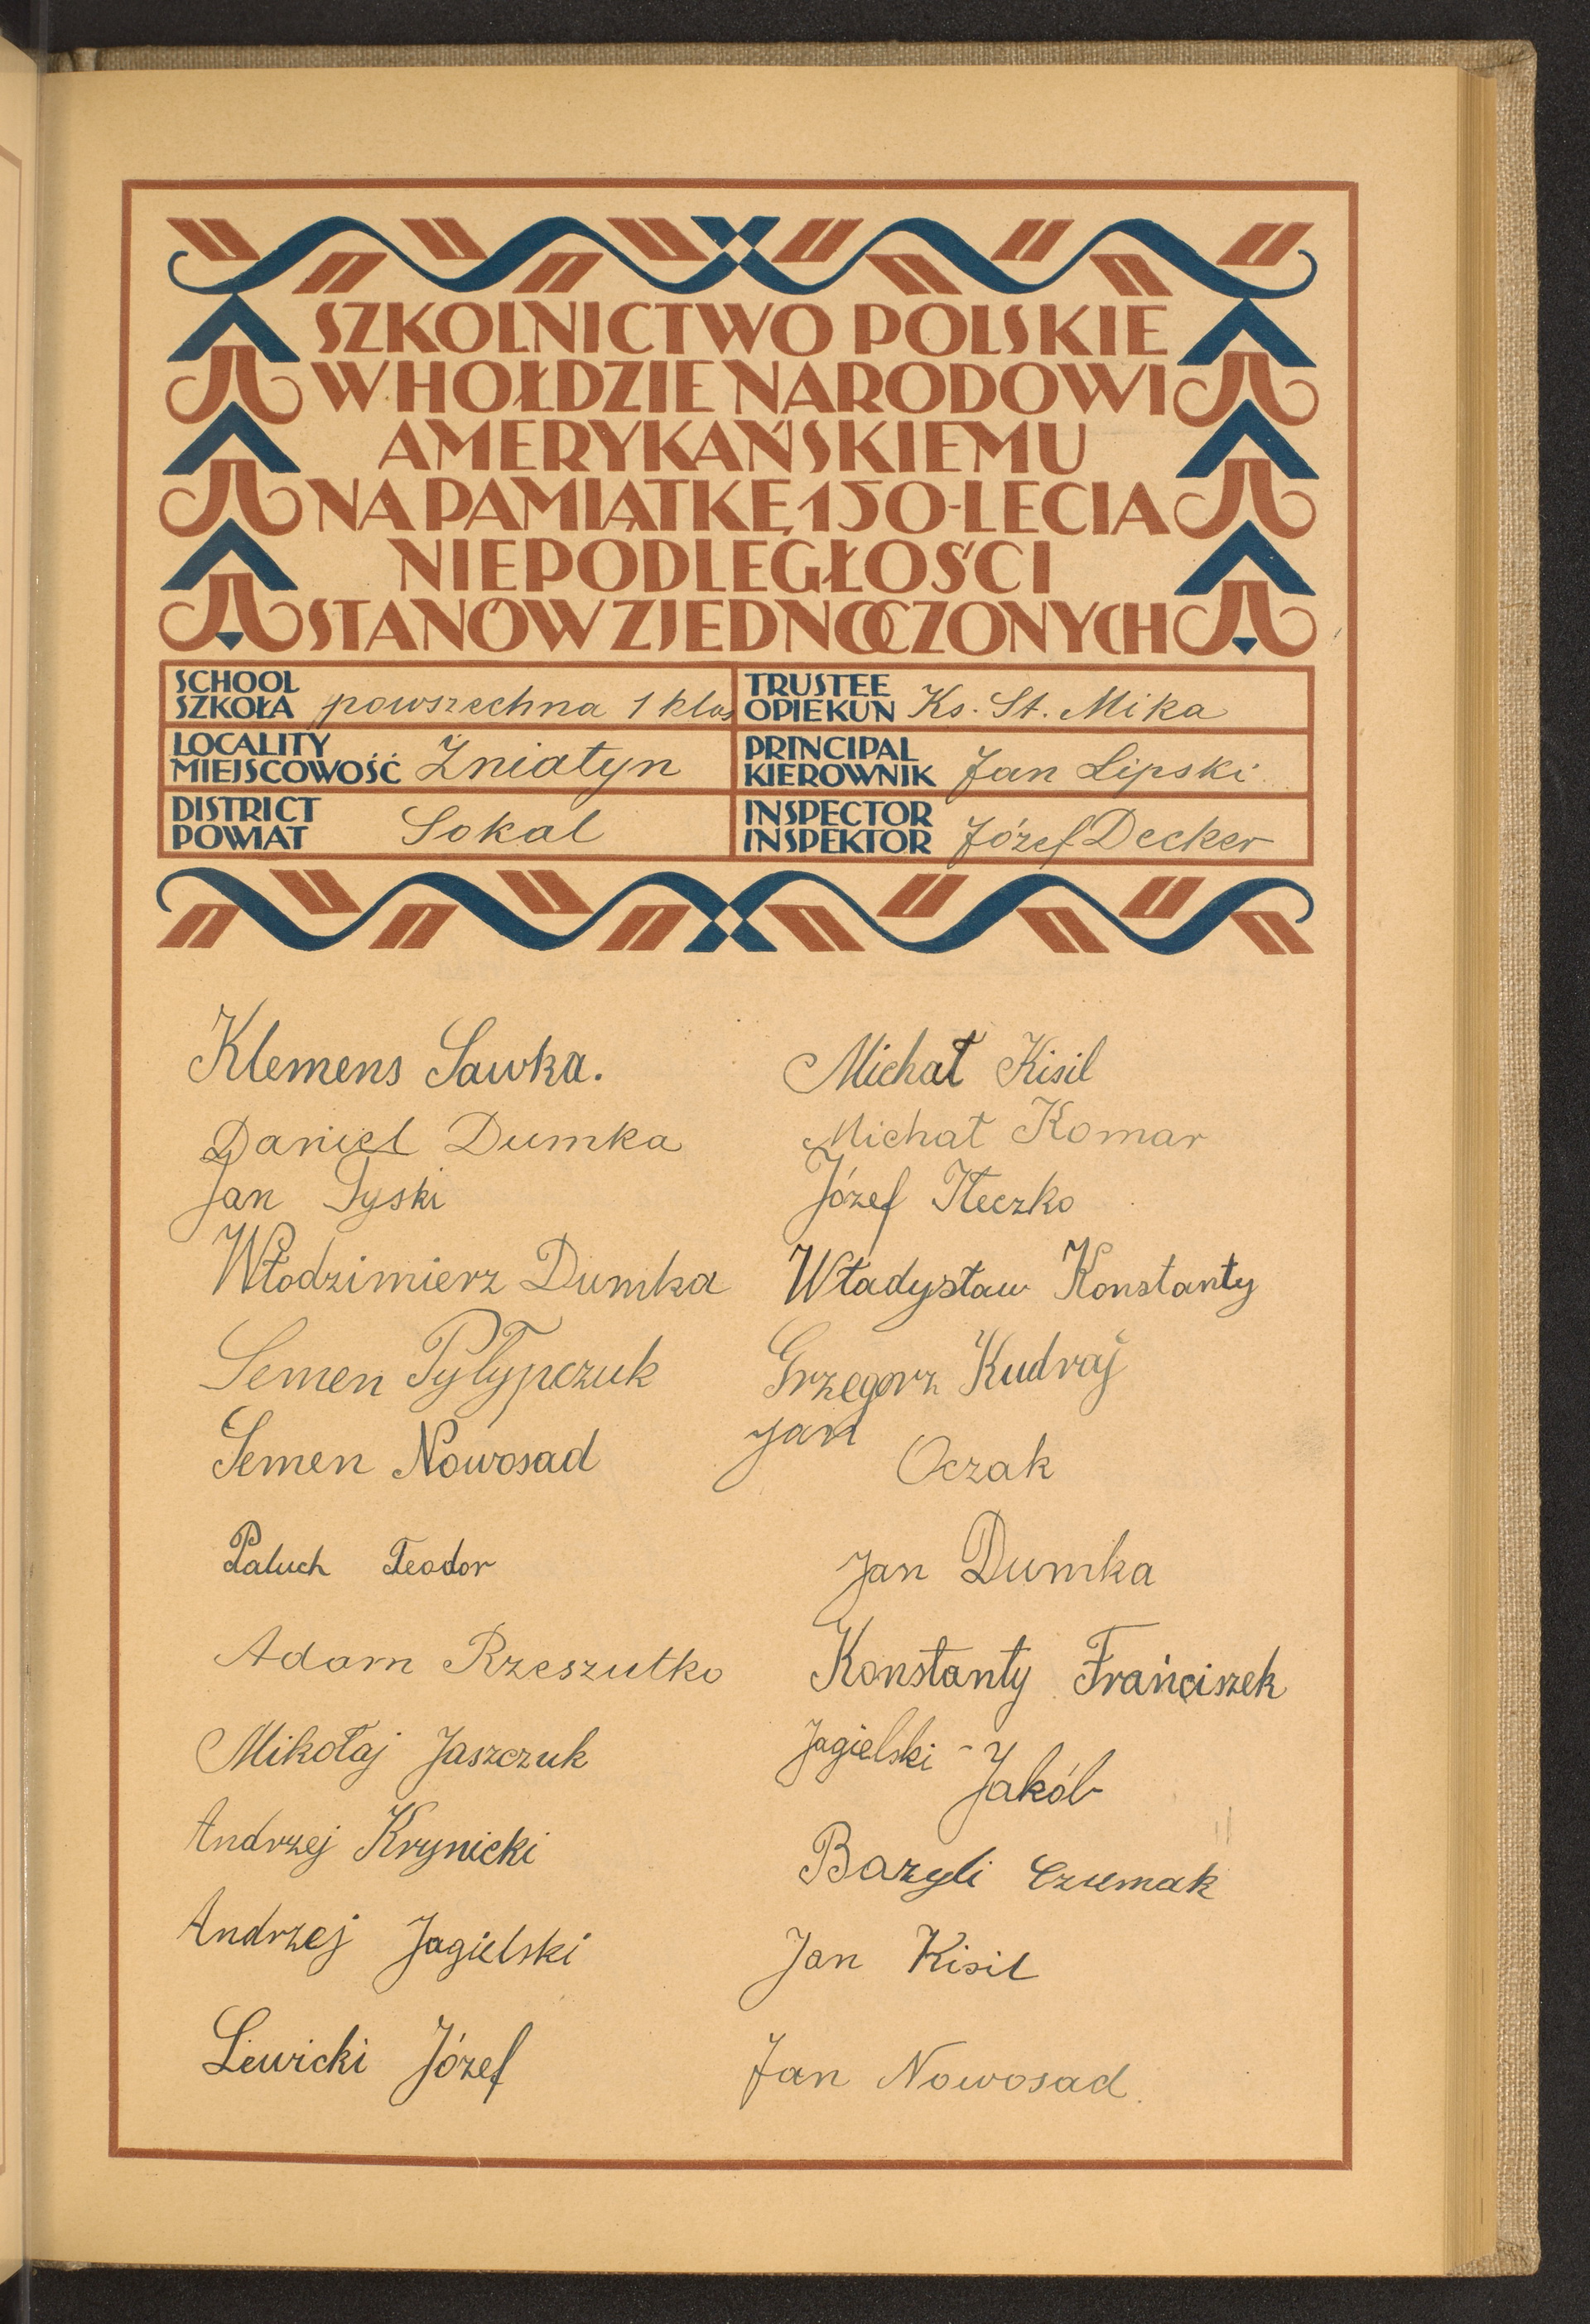 SZKOLNICTWO POLSKIE
W HOŁDZIE NARODOWI
AMERYKAŃSKIEMU
NA PAMIĄTKĘ 150-LECIA
NIEPODLEGŁOŚCI
STANÓW ZJEDNOCZONYCH
SCHOOL
SZKOŁA powszechna 1 klas
LOCALITY
MIEJSCOWOŚĆ Żniatyn
DISTRICT
POWIAT Sokal
TRUSTEE
OPIEKUN Ks. St. Mika
PRINCIPAL
KIEROWNIK Jan Lipski
INSPECTOR
INSPEKTOR Józef Decker
Klemens Sawka.
Daniel Dumka
Jan Tyski
Włodzimierz Dumka
Semen Pyłypczuk
Semen Nowosad
Paluch Teodor
Adam Rzeszutko
Mikołaj Jaszczuk
Andrzej Krynicki
Andrzej Jagielski
Lewicki Józef
Michał Kisil
Michał Komar
Józef Tteczko
Władysław Konstanty
Grzegorz Kudraj
Jan Oczak
Jan Dumka
Konstanty Franciszek
Jagielski - Jakób
Bazyli Czumak
Jan Kisil
Jan Nowosad.